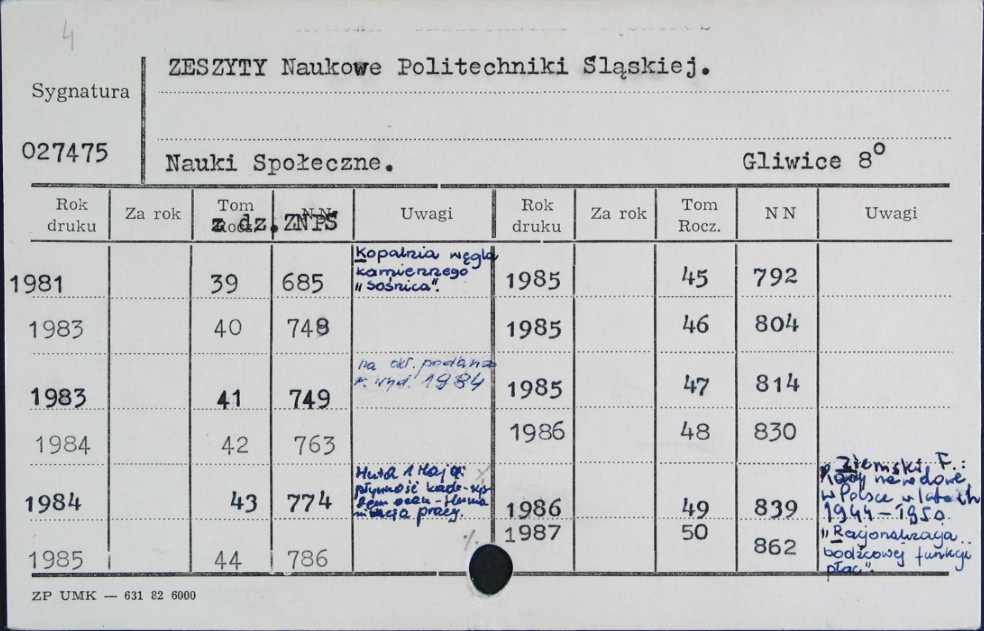 4
ZESZYTY Naukowe Politechniki Śląskiej.
Sygnatura
027475
Nauki Społeczne. Gliwice 8°
Rok druku Za rok Tom Rocz. NN Uwagi Rok druku Za rok Tom Rocz. NN Uwagi
z dz. ZNPŚ
1981 39 685 Kopalnia węgla kamiennego "Sośnica". 1985 45 792
1983 40 748 1985 46 804
1983 41 749 na okł. podano r. wyd. 1984 1985 47 814
1984 42 763 1986 48 830
1984 43 774 Huta 1 Maja: płynność pracy. 1986 49 839 Ziemski, F.: Rady narodowe w Polsce w latach 1944-1950.
1985 44 786 1987 50 862 "Racjonalizacja bodźcowej funkcji płac".
ZP UMK — 631 82 6000